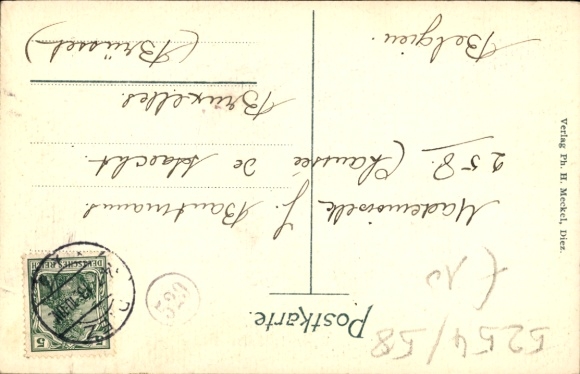 Postkarte.
Mademoiselle J. Bautmans
258. Chaussée de Haecht.
Bruxelles.
Belgien. (Brüssel)
Verlag Ph. H. Meckel, Diez.
DEUTSCHES REICH
5
5254/58